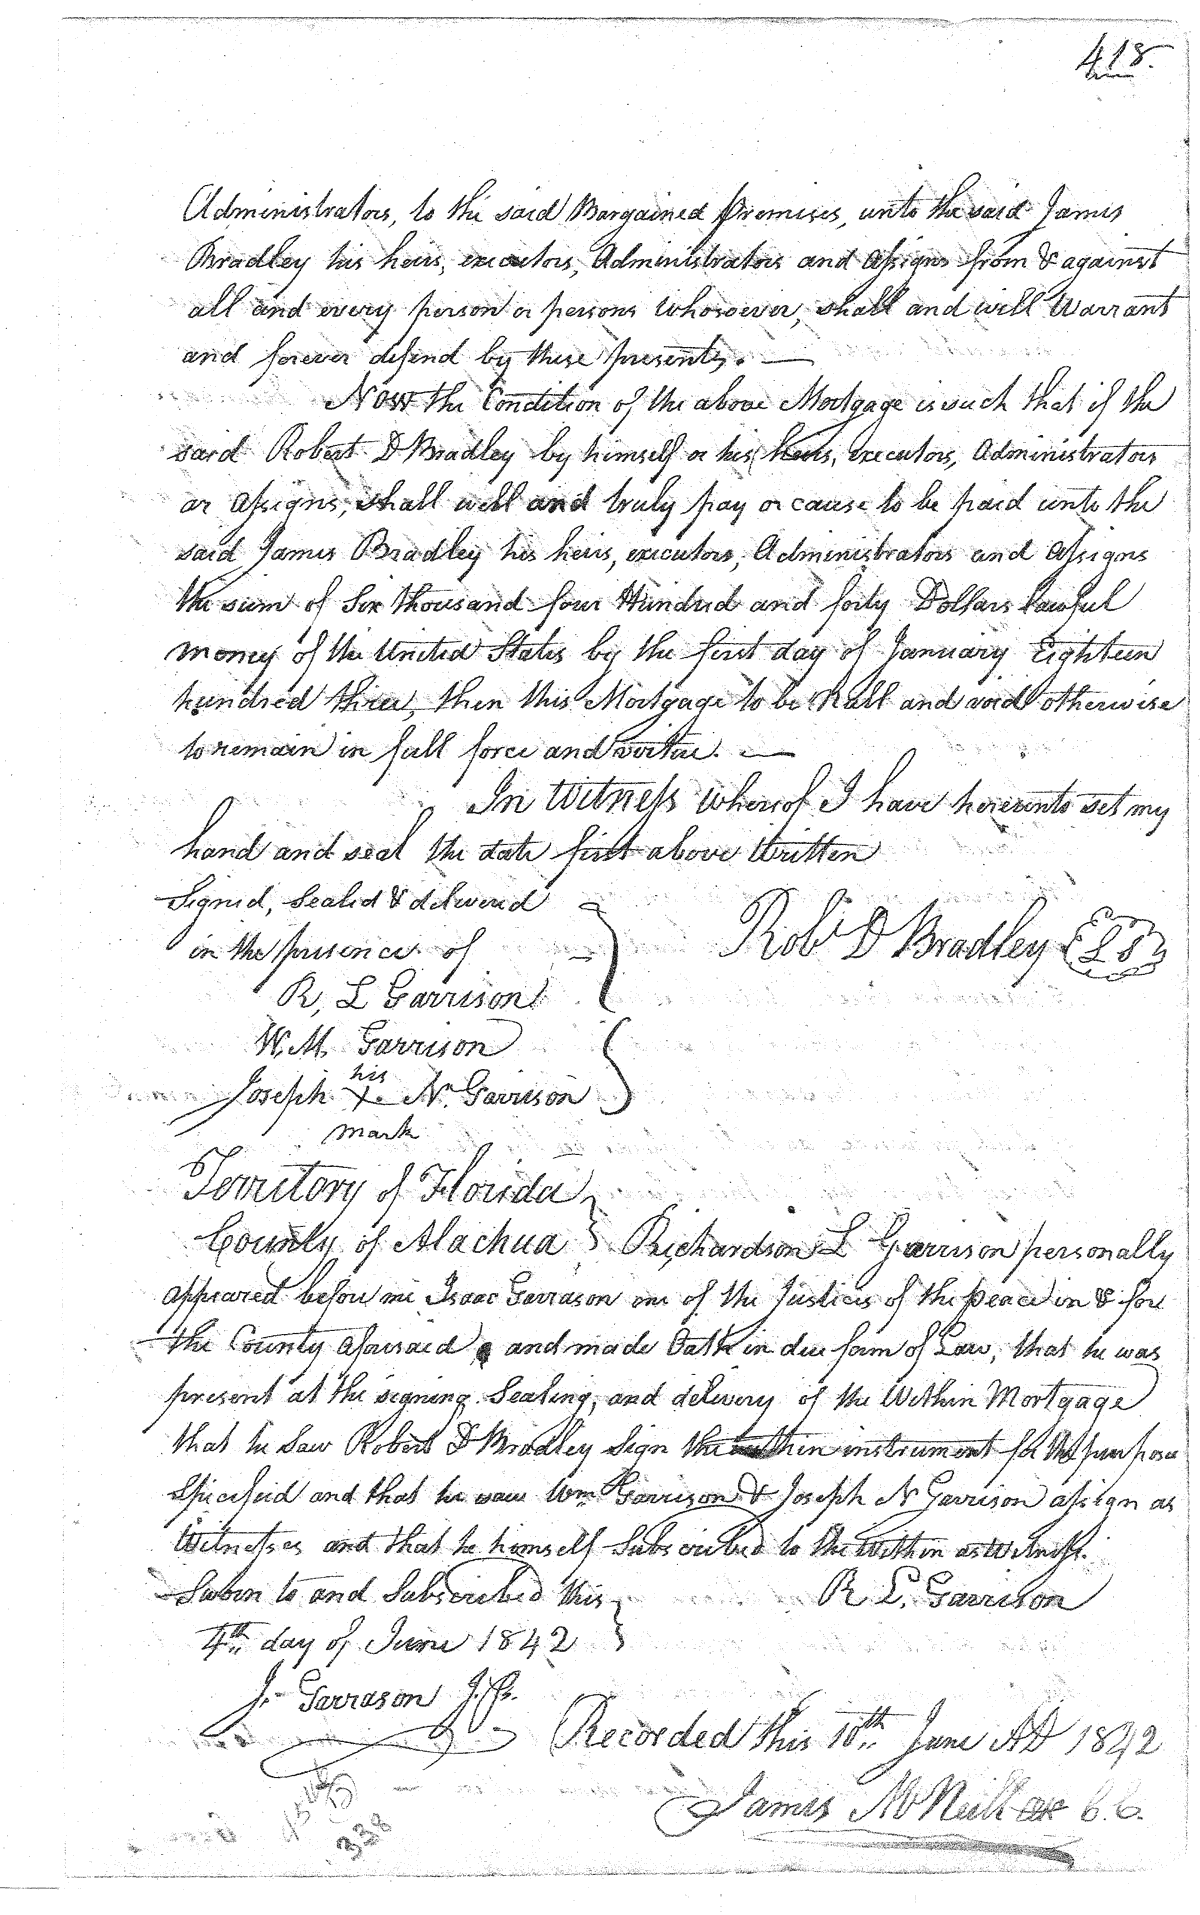 418.
Administrators, to the said Bargained Premises, unto the said James
Bradley his heirs, executors, Administrators and Assigns from & against
all and every person or persons whosoever, shall and will Warrant
and forever defend by these presents. —
Now the Condition of the above Mortgage is such that if the
said Robert D Bradley by himself or his heirs, executors, Administrators
or Assigns, shall well and truly pay or cause to be paid unto the
said James Bradley his heirs, executors, Administrators and Assigns
the sum of Six thousand four Hundred and forty Dollars lawful
money of the United States by the first day of January Eighteen
hundred three, then this Mortgage to be Null and void otherwise
to remain in full force and virtue. —
In Witness whereof I have hereunto set my
hand and seal the date first above Written
Signed, Sealed & delivered
in the presence of
Robt D Bradley L S
R, L Garrison
W. M. Garrison
his
Joseph X N. Garrison
mark
Territory of Florida
County of Alachua } Richardson L Garrison personally
appeared before me Isaac Garrason one of the Justices of the peace in & for
the County aforesaid, and made Oath in due form of Law, that he was
present at the signing Sealing, and delivery of the Within Mortgage
that he Saw Robert D Bradley Sign the within instrument for the purpose
Specifeid and that he saw Wm Garrison & Joseph N Garrison assign as
Witnesses and that he himself Subscribed to the Within as Witness.
Sworn to and Subscribed this
R L. Garrison
4th day of June 1842
J. Garrason J. P.
Recorded this 10th June AD 1842
James McNeill C. C.
338